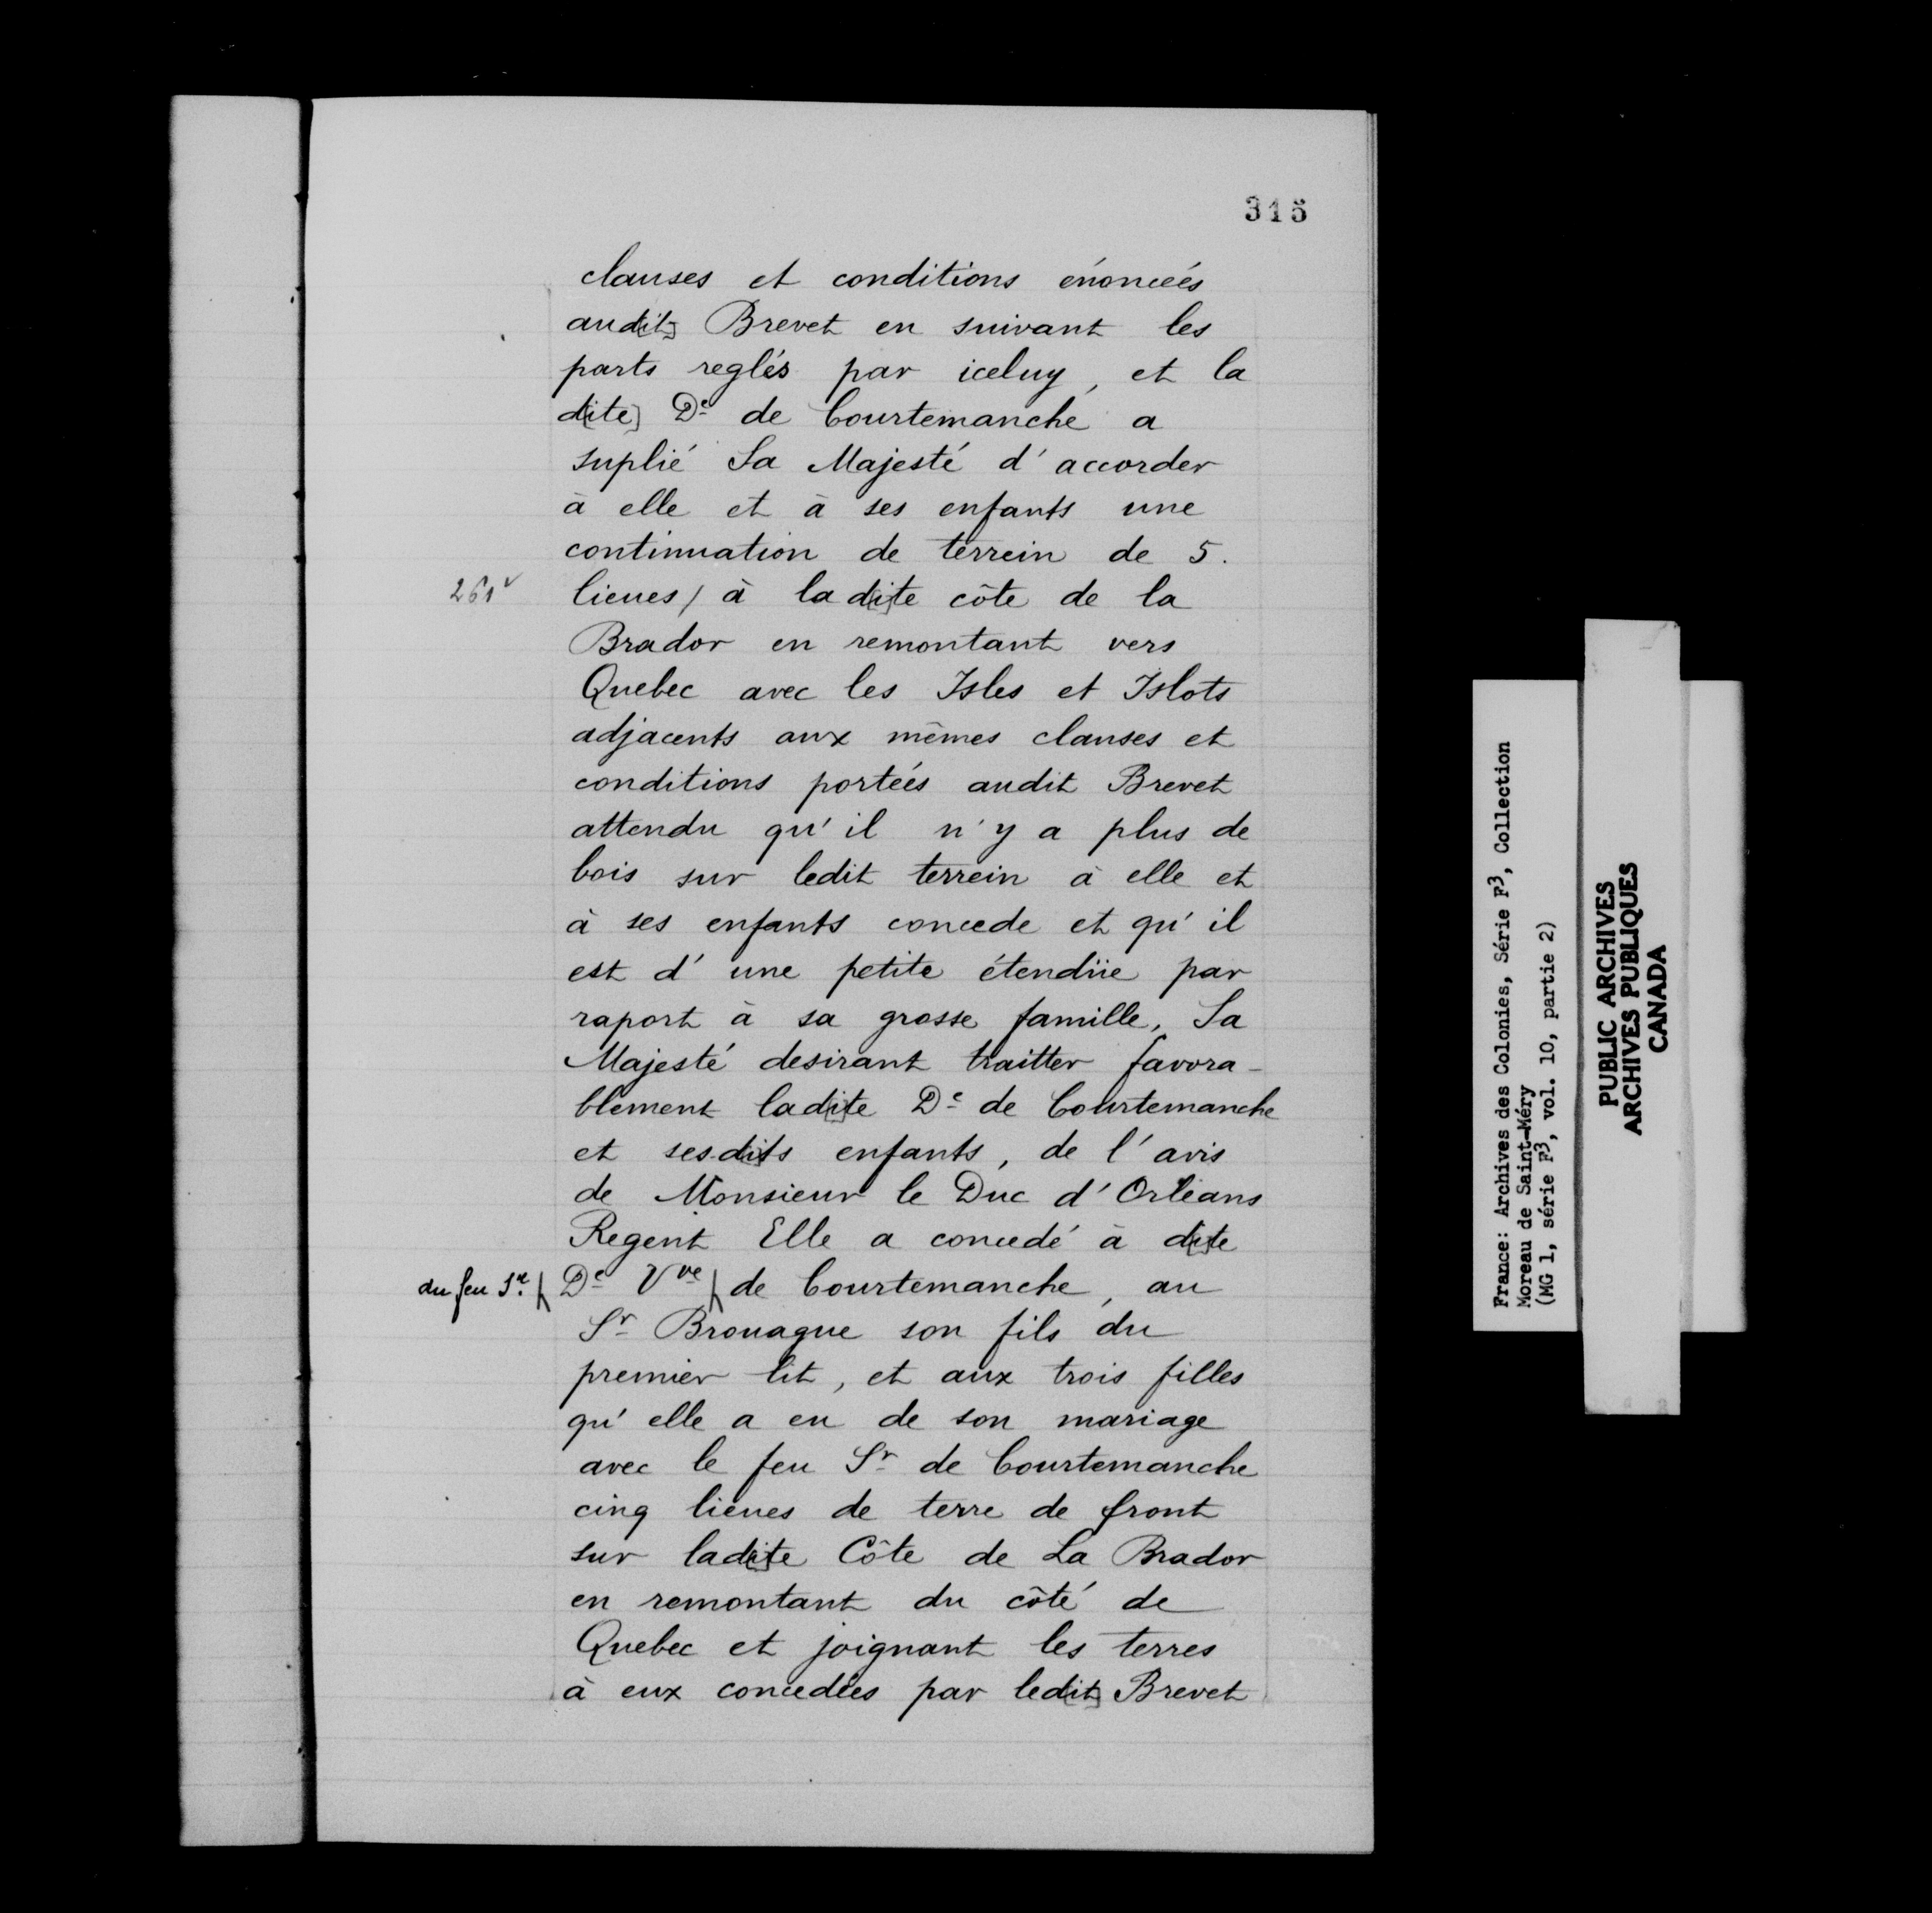 315
clauses et conditions énoncées
aud[it] Brevet en suivant les
parts reglés par iceluy, et la
d[ite] De de Courtemanche a
suplié Sa Majesté d'accorder
à elle et à ses enfants une
continuation de terrein de 5.
261v
lieues / à lad[i]te côte de la
Brador en remontant vers
Quebec avec les Isles et Islots
adjacents aux mêmes clauses et
conditions portées audit Brevet
attendu qu'il n'y a plus de
bois sur ledit terrein à elle et
à ses enfants concede et qu'il
est d'une petite étendüe par
raport à sa grosse famille, Sa
Majesté desirant traitter favora-
blement lad[i]te De de Courtemanche
et sesd[i]ts enfants, de l'avis
de Monsieur le Duc d'Orléans
Regent Elle a concedé à d[i]te
du feu Sr.
De Vve de Courtemanche, au
Sr Brouague son fils du
premier lit, et aux trois filles
qu'elle a eu de son mariage
avec le feu Sr de Courtemanche
cinq lieues de terre de front
sur lad[i]te Côte de La Brador
en remontant du côté de
Quebec et joignant les terres
à eux concedées par led[it] Brevet
France: Archives des Colonies, Série F3, Collection
Moreau de Saint-Méry
(MG 1, série F3, vol. 10, partie 2)
PUBLIC ARCHIVES
ARCHIVES PUBLIQUES
CANADA